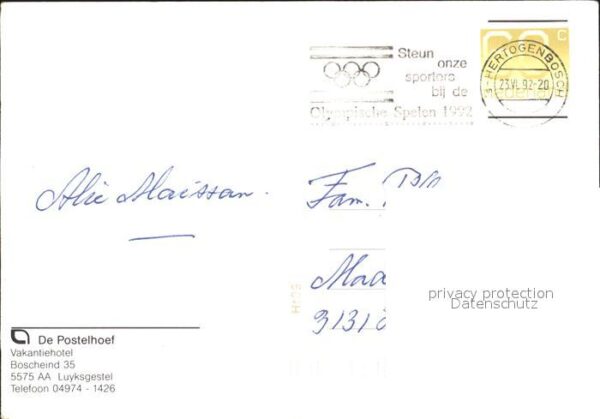 Steun
onze
sporters
bij de
Olympische Spelen 1992
60 c
nederland
's-HERTOGENBOSCH
23.VI.92-20
Alie Maissan.
Fam.
Maa
3131
privacy protection
Datenschutz
De Postelhoef
Vakantiehotel
Boscheind 35
5575 AA Luyksgestel
Telefoon 04974 - 1426